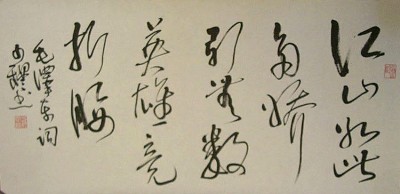 江山如此
多娇
引无数
英雄竞
折腰
毛泽东词